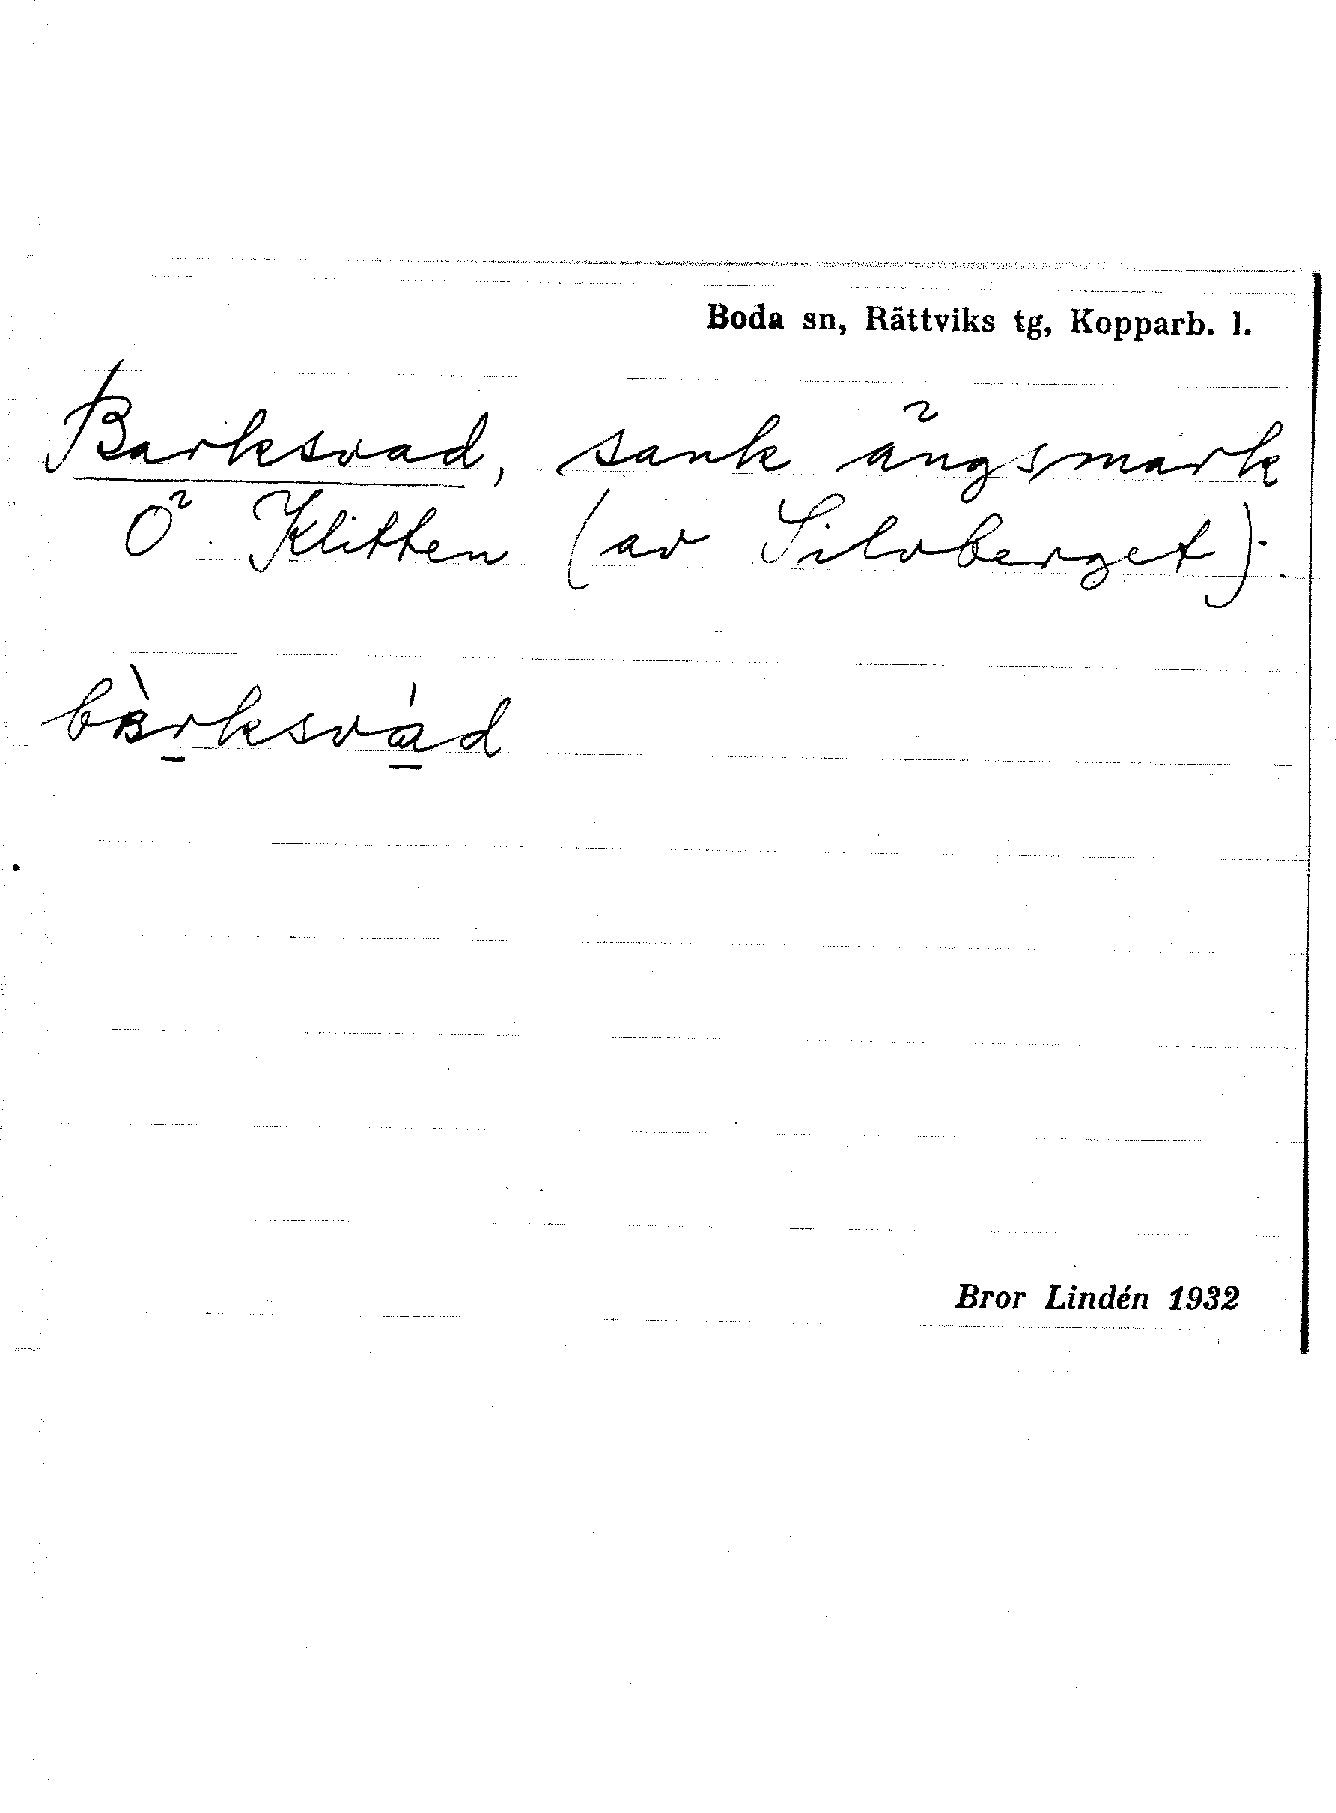 Boda sn, Rättviks tg, Kopparb. l.
Barksvad, sank ängsmark
Ö Klitten (av Silvberget).
bàrksvád
Bror Lindén 1932